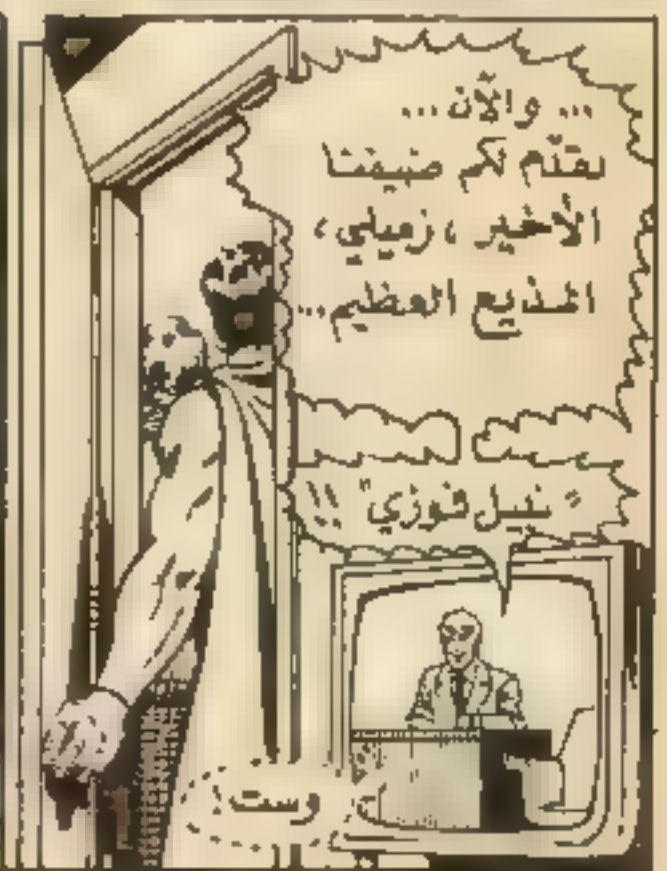 ... والآن ...
نقدّم لكم ضيفنا
الأخير ، زميلي ،
المذيع العظيم...
" نبيل فوزي " !!
وست !